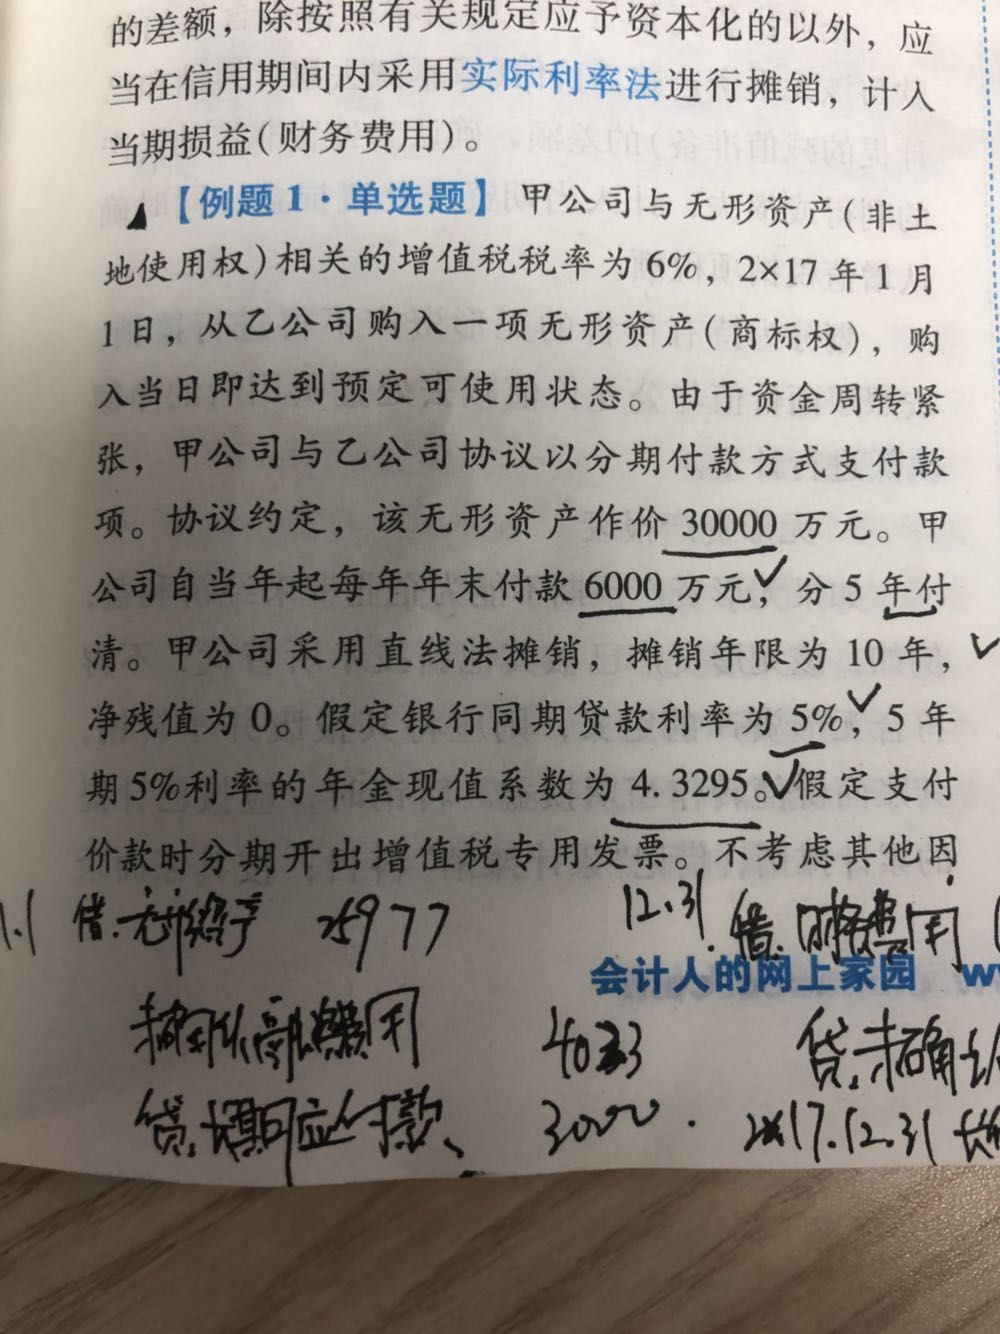 的差额，除按照有关规定应予资本化的以外，应
当在信用期间内采用实际利率法进行摊销，计入
当期损益(财务费用)。
【例题1·单选题】甲公司与无形资产(非土
地使用权)相关的增值税税率为6%，2×17年1月
1日，从乙公司购入一项无形资产(商标权)，购
入当日即达到预定可使用状态。由于资金周转紧
张，甲公司与乙公司协议以分期付款方式支付款
项。协议约定，该无形资产作价30000万元。甲
公司自当年起每年年末付款6000万元，分5年付
清。甲公司采用直线法摊销，摊销年限为10年，
净残值为0。假定银行同期贷款利率为5%，5年
期5%利率的年金现值系数为4.3295。假定支付
价款时分期开出增值税专用发票。不考虑其他因
1.1 借：无形资产 25977
12.31 借：财务费用
会计人的网上家园 w
未确认融资费用 4023
贷：未确认
贷：长期应付款 3000
2×17.12.31 长